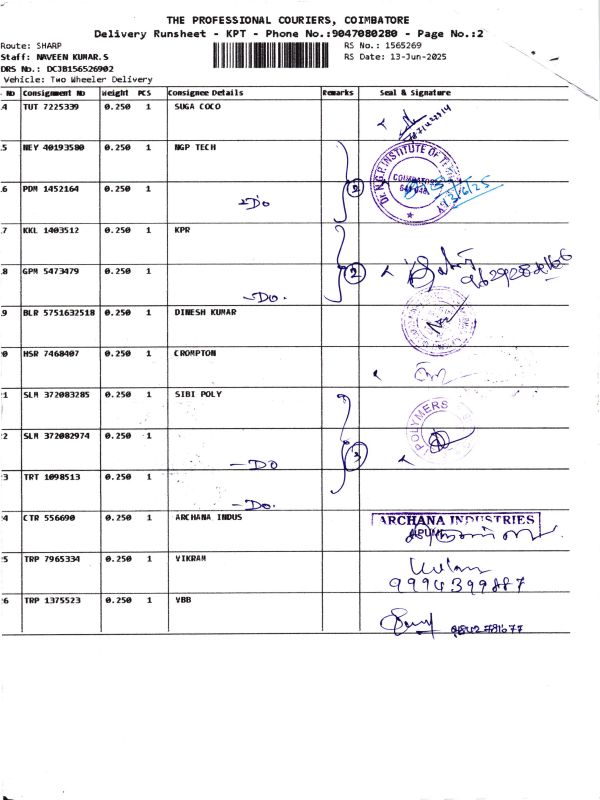 THE PROFESSIONAL COURIERS, COIMBATORE
Delivery Runsheet - KPT - Phone No.:9047080280 - Page No.:2
Route: SHARP
RS No.: 1565269
Staff: NAVEEN KUMAR.S
RS Date: 13-Jun-2025
DRS No.: DCJB156526902
Vehicle: Two Wheeler Delivery
No Consignment No Weight PCS Consignee Details Remarks Seal & Signature
4 TUT 7225339 0.250 1 SUGA COCO
5 NEY 40193580 0.250 1 NGP TECH
6 PDM 1452164 0.250 1
-Do
2
7 KKL 1403512 0.250 1 KPR
8 GPM 5473479 0.250 1
-Do.
2
9 BLR 5751632518 0.250 1 DINESH KUMAR
0 HSR 7468407 0.250 1 CROMPTON
1 SLM 372083285 0.250 1 SIBI POLY
POLYMERS
2 SLM 372082974 0.250 1
-Do
3
3 TRT 1098513 0.250 1
-Do.
4 CTR 556690 0.250 1 ARCHANA INDUS
ARCHANA INDUSTRIES
5 TRP 7965334 0.250 1 VIKRAM
9994399887
6 TRP 1375523 0.250 1 VBB